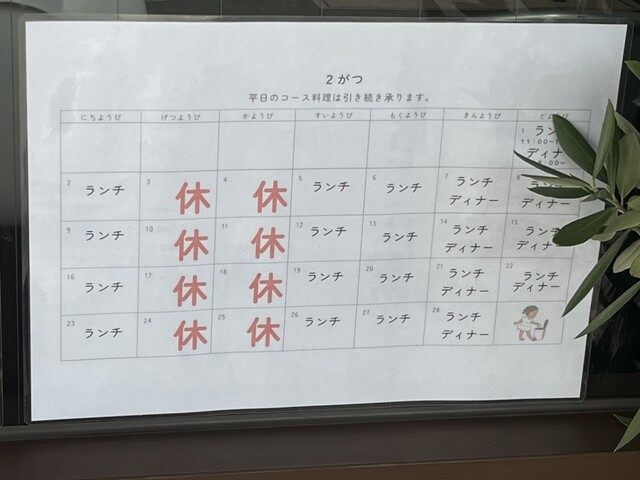 2がつ
平日のコース料理は引き続き承ります。
にちようび げつようび かようび すいようび もくようび きんようび どようび
1 ラン
11:00~
ディナ
2 ランチ
3 休
4 休
5 ランチ
6 ランチ
7 ランチ
ディナー
ディナー
9 ランチ
10 休
11 休
12 ランチ
13 ランチ
14 ランチ
ディナー
15 ランチ
ディナー
16 ランチ
17 休
18 休
19 ランチ
20 ランチ
21 ランチ
ディナー
22 ランチ
ディナー
23 ランチ
24 休
25 休
26 ランチ
27 ランチ
28 ランチ
ディナー